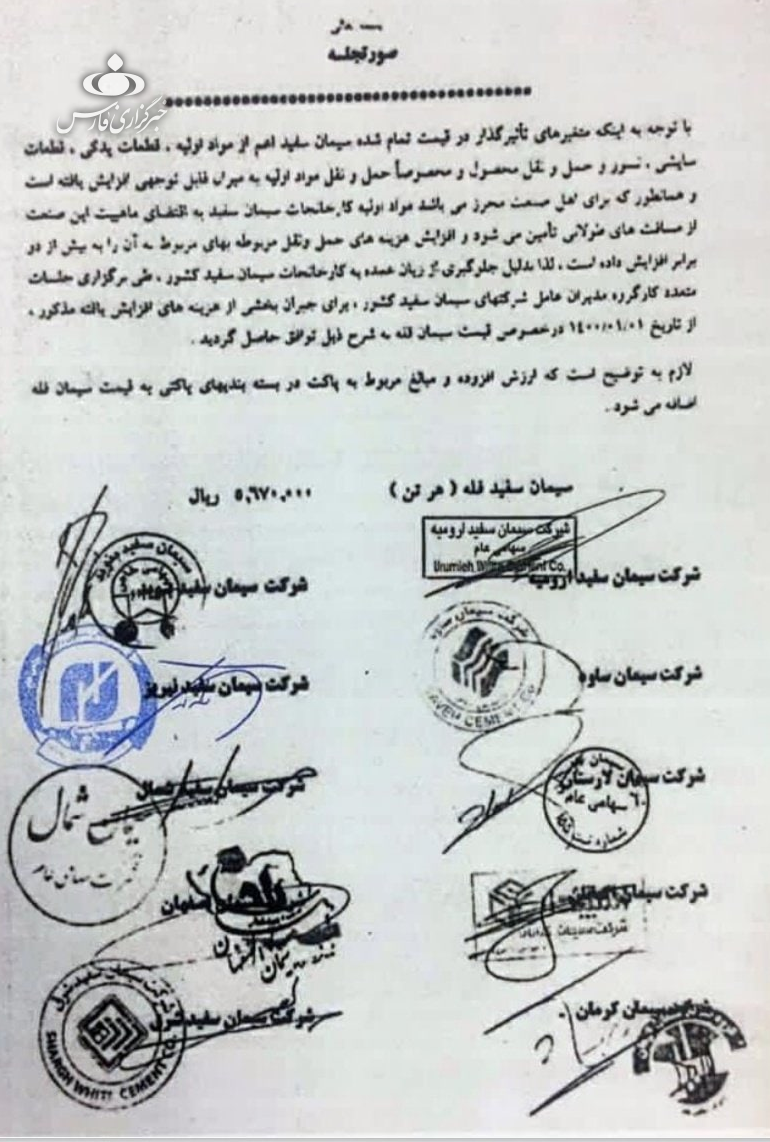 بسمه تعالی
صورتجلسه
خبرگزاری فارس
با توجه به اینکه متغیرهای تأثیرگذار در قیمت تمام شده سیمان سفید اعم از مواد اولیه ، قطعات یدکی ، قطعات
سایشی ، نسوز و حمل و نقل محصول و مخصوصاً حمل و نقل مواد اولیه به میزان قابل توجهی افزایش یافته است
و همانطور که برای اهل صنعت محرز می باشد مواد اولیه کارخانجات سیمان سفید به اقتضای ماهیت این صنعت
از مسافت های طولانی تأمین می شود و افزایش هزینه های حمل ونقل مربوطه بهای مربوط به آن را به بیش از دو
برابر افزایش داده است ، لذا بدلیل جلوگیری از زیان عمده به کارخانجات سیمان سفید کشور ، طی برگزاری جلسات
متعدد کارگروه مدیران عامل شرکتهای سیمان سفید کشور ، برای جبران بخشی از هزینه های افزایش یافته مذکور ،
از تاریخ ۱۴۰۰/۰۱/۰۱ درخصوص قیمت سیمان فله به شرح ذیل توافق حاصل گردید .
لازم به توضیح است که ارزش افزوده و مبالغ مربوط به پاکت در بسته بندیهای پاکتی به قیمت سیمان فله
اضافه می شود .
سیمان سفید فله ( هر تن ) ۵,۶۷۰,۰۰۰ ریال
شرکت سیمان سفید ارومیه
سهامی عام
Urumieh White Cement Co.
شرکت سیمان سفید ارومیه
شرکت سیمان سفید
سیمان سفید
شرکت سیمان ساوه
شرکت سیمان ساوه
SAVEH CEMENT CO.
شرکت سیمان سفید نیریز
شرکت سیمان لارستان
سهامی عام
شماره ثبت
شرکت سیمان سفید شمال
شمال
شرکت سیمان
شرکت
اصفهان
سیمان اصفهان
شرکت سیمان کرمان
شرکت سیمان سفید شرق
شرکت سیمان سفید شرق
SHARGH WHITE CEMENT CO.